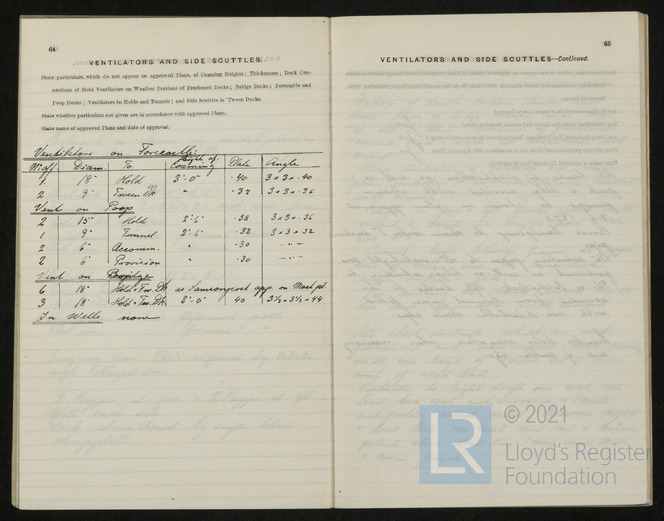 64
VENTILATORS AND SIDE SCUTTLES.
State particulars, which do not appear on approved Plans, of Coaming Heights; Thicknesses; Deck Con-
nections of Hold Ventilators on Weather Portions of Freeboard Decks; Bridge Decks; Forecastle and
Poop Decks; Ventilators to Holds and Tunnels; and Side Scuttles in 'Tween Decks.
State whether particulars not given are in accordance with approved Plans.
State name of approved Plans and date of approval.
Ventilators on Forecastle
No off. Diam To. Height of Coaming Plate Angle
1 18" Hold 3'-0" .40 3 x 3 x .40
2 9" Tween Dk " .32 3 x 3 x .36
Vent on Poop
2 15" Hold 2'-6" .38 3 x 3 x .36
1 9" Tunnel 2'-6" .32 3 x 3 x 32
2 6" Accomm. " .30 — " —
2 6" Provision " .30 — " —
Vent on Bridge
6 18" Hold + Tw Dk as Samsonpost app. on Mast pl.
3 18" Hold + Twn Dk. 8'-0" 40 3½ x 3½ x 44
In Wells none
65
VENTILATORS AND SIDE SCUTTLES—Continued.
© 2021
LR
Lloyd's Register
Foundation